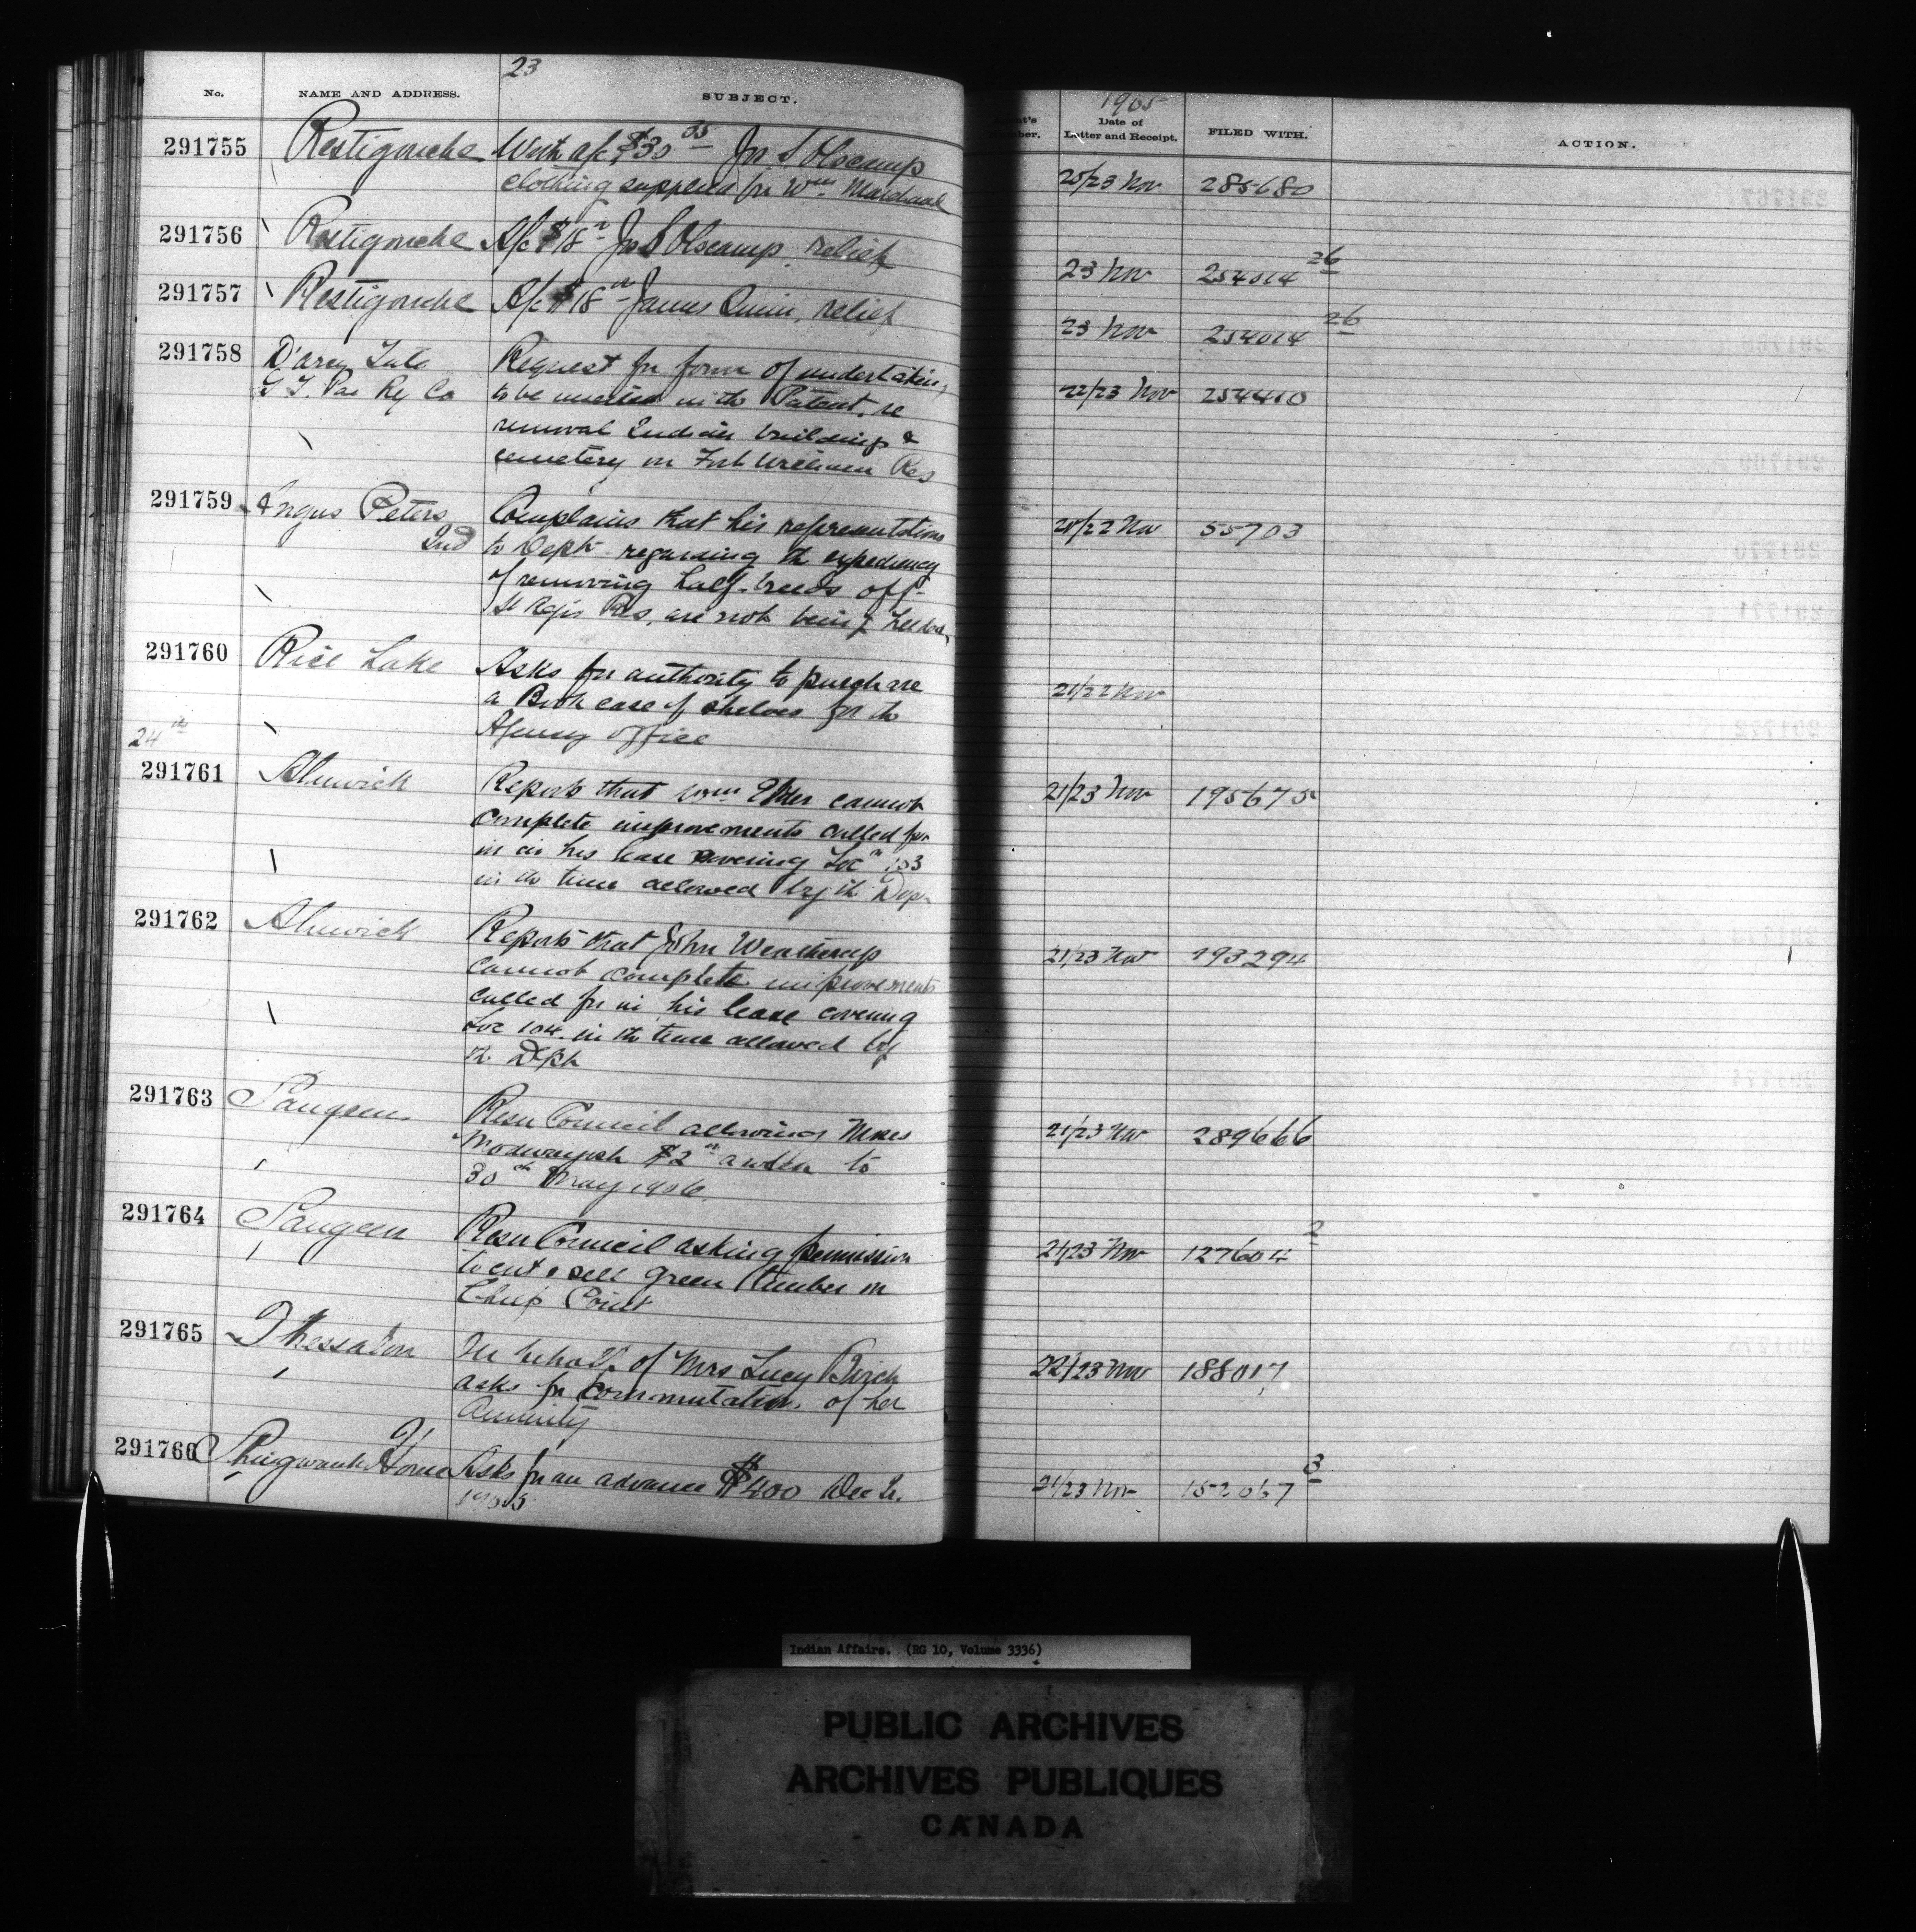 23
No. NAME AND ADDRESS. SUBJECT.
1905
Date of
Letter and Receipt. FILED WITH. ACTION.
291755 Restigouche With a/c $30 35 Jn S Olscamp 20/23 Nov 285680
clothing supplied for Wm
291756 Restigouche A/c $18 Jn S Olscamp relief 23 Nov 254014 26
291757 Restigouche A/c $18 00 James Quinn, relief 23 Nov 254014 26
291758 D'arcy Tate Request for form of undertaking 22/23 Nov 254410
G T. Pac Ry Co to be inserted in the Patent, re
removal Indian buildings &
cemetery on Fort William Res
291759 Angus Peters Complains that his representations 21/22 Nov 55703
Ind to Dept regarding the expediency
of removing half-breeds off
St Regis Res, are not being heeded
291760 Rice Lake Asks for authority to purchase 21/22 Nov
a Book case of shelves for the
Agency office
24th
291761 Alnwick Reports that Wm cannot 21/23 Nov 195675
complete improvements called for
in his lease covering Loc n 103
in the time allowed by the Dep
291762 Alnwick Reports that John Weatherup 21/23 Nov 193294
cannot complete improvements
called for in his lease covering
Loc 104 in the time allowed by
the Dept
291763 Saugeen Resn Council allowing Moses 21/23 Nov 289666
$2 to
30th May 1906.
291764 Saugeen Resn Council asking permission 21/23 Nov 127604 2
to cut & sell green timber on
Chiefs Point
291765 Thessalon In behalf of Mrs Lucy Birch 22/23 Nov 188017
asks for commutation of her
annuity
291766 Shingwauk Home Asks for an advance $400 Dec Qr. 21/23 Nov 152067 3
1905
Indian Affairs. (RG 10, Volume 3336)
PUBLIC ARCHIVES
ARCHIVES PUBLIQUES
CANADA